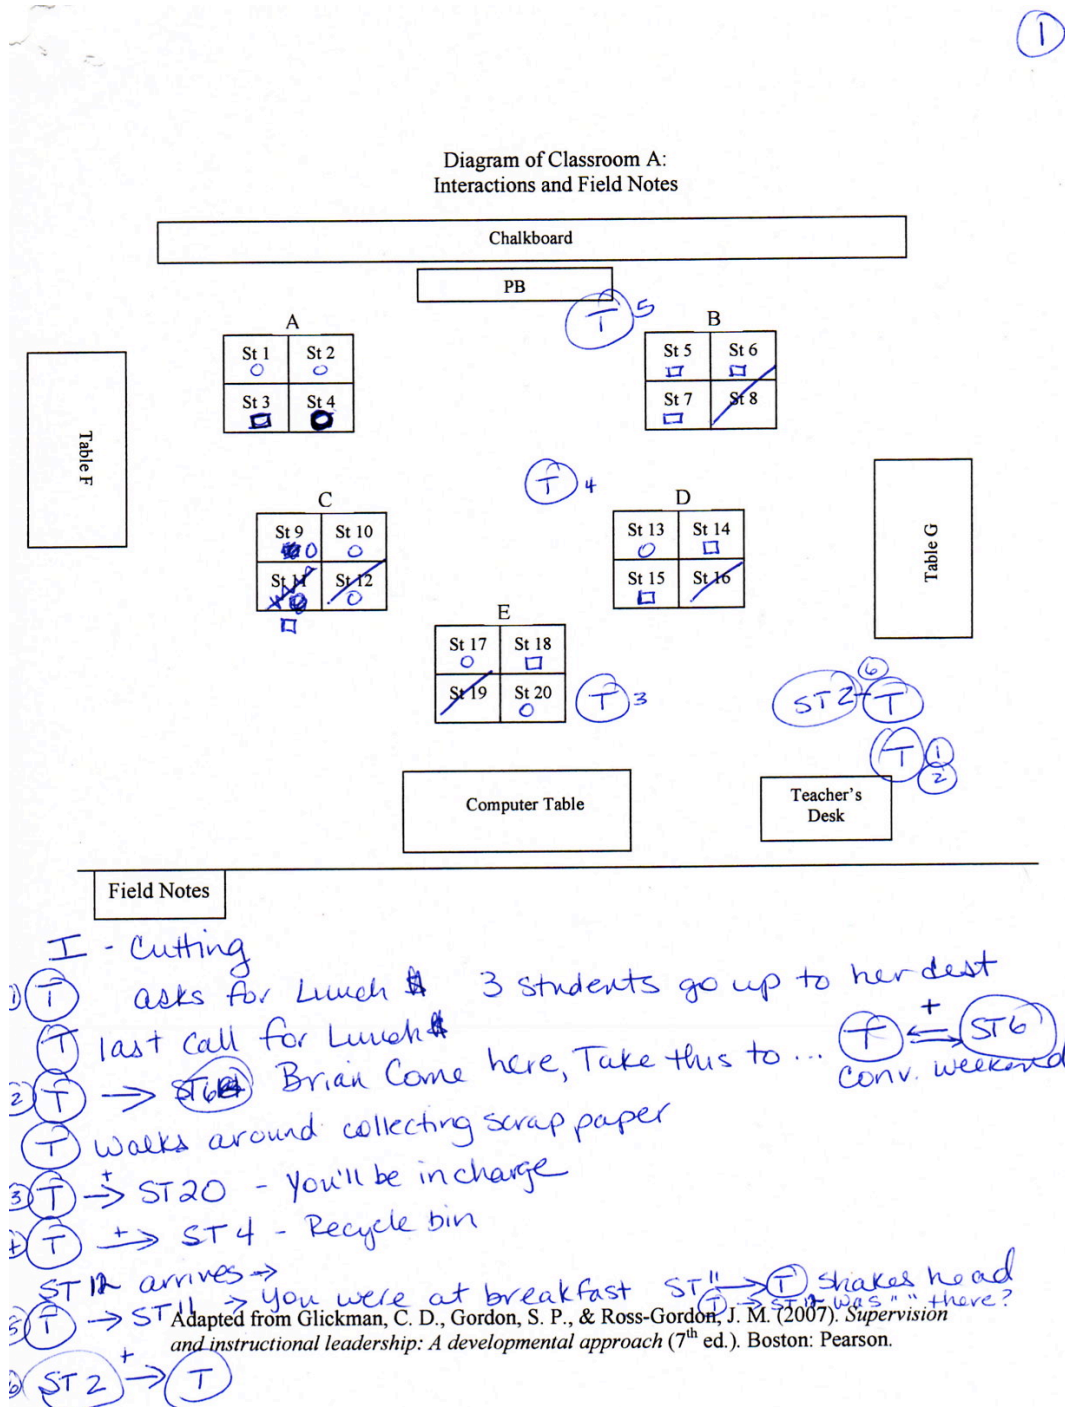 1
Diagram of Classroom A:
Interactions and Field Notes
Chalkboard
PB
T 5
A
B
St 1 St 2
St 5 St 6
St 3 St 4
St 7 St 8
Table F
T 4
C
D
Table G
St 9 St 10
St 13 St 14
St 11 St 12
St 15 St 16
E
St 17 St 18
St 19 St 20
T 3
6
ST2 T
T 1
2
Computer Table
Teacher's
Desk
Field Notes
I - Cutting
1 T asks for Lunch $ 3 students go up to her dest
T last call for Lunch $
2 T → ST6 Brian Come here, Take this to ... T + ST6
conv. weekend
T walks around collecting scrap paper
3 T +→ ST20 - You'll be in charge
4 T +→ ST4 - Recycle bin
ST 12 arrives →
5 T → ST 11 → You were at breakfast ST 11 → T shakes head
T → ST 12 was " " there?
Adapted from Glickman, C. D., Gordon, S. P., & Ross-Gordon, J. M. (2007). Supervision
and instructional leadership: A developmental approach (7th ed.). Boston: Pearson.
6 ST2 +→ T